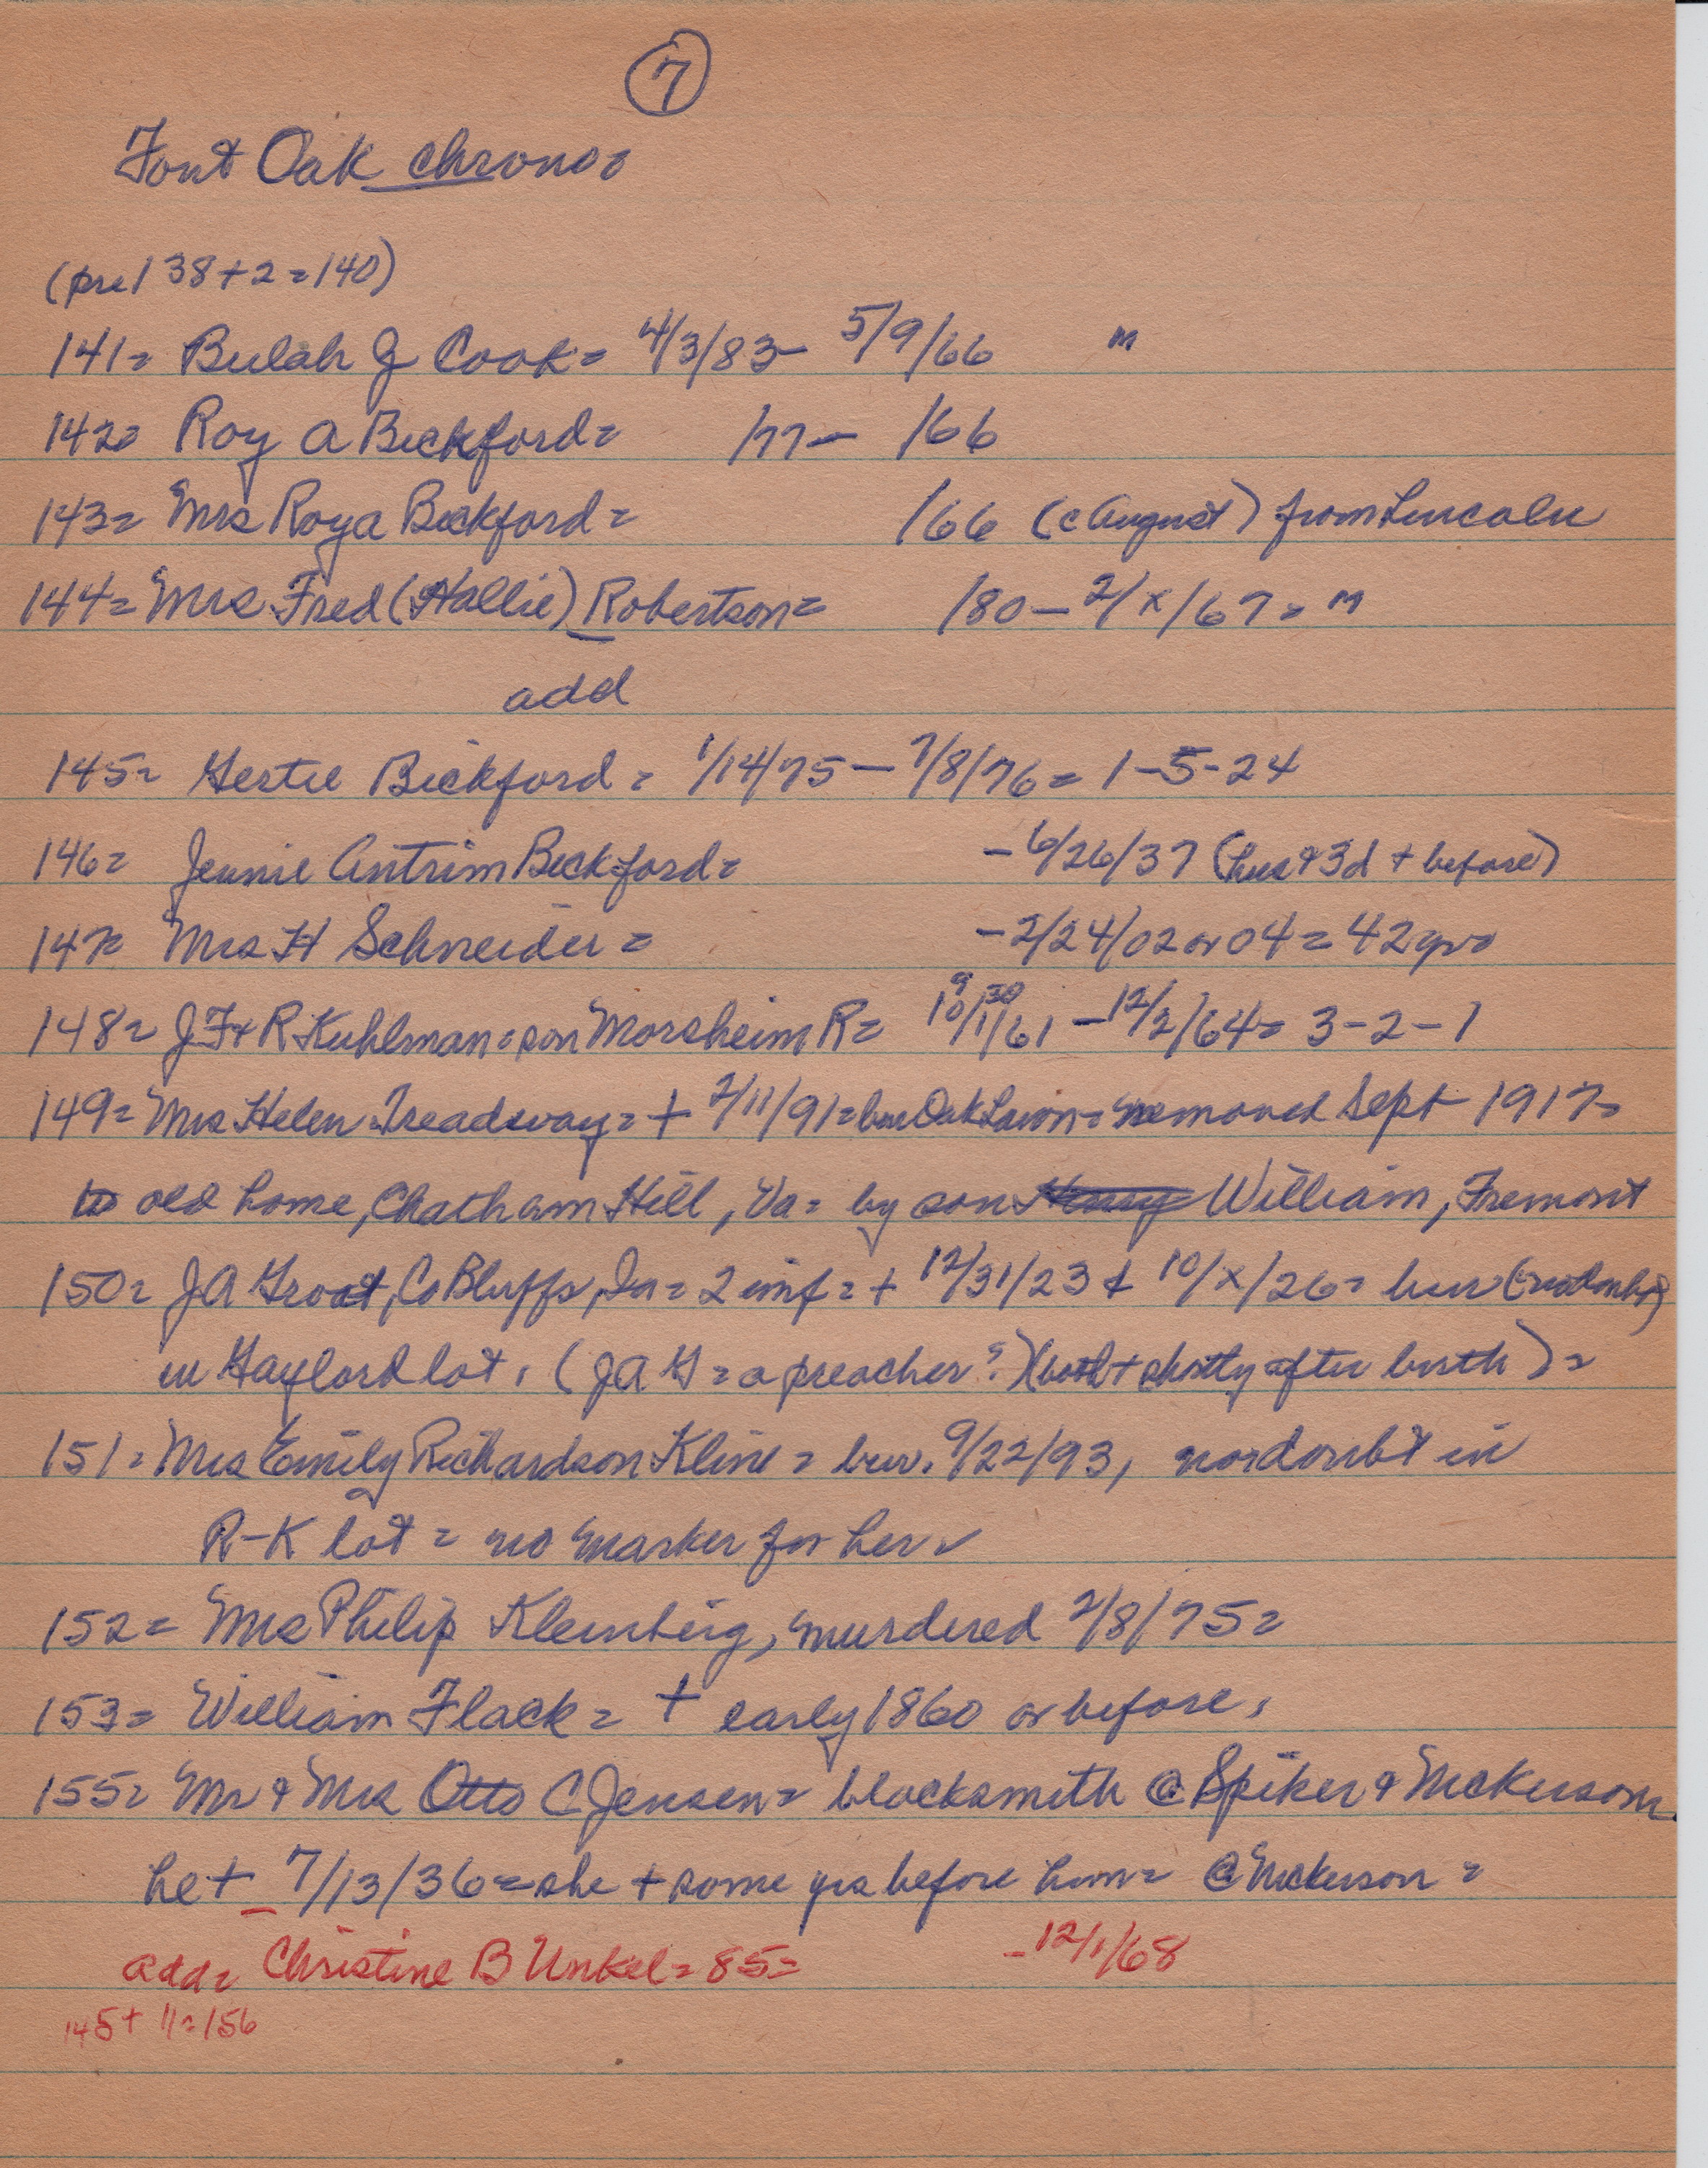 7
Font Oak chrono=
(pre 138+2=140)
141= Bulah J Cook= 4/3/83- 5/9/66 m
142= Roy A Bickford= /77- /66
143= Mrs Roy A Bickford= /66 (c August) from Lincoln
144= Mrs Fred (Hallie) Robertson= /80-2/x/67= m
add
145= Gertie Bickford= 1/14/75-7/8/76= 1-5-24
146= Jennie Antrim Bickford= -6/26/37 (hus + 3d + before)
147= Mrs H Schneider= -2/24/02 or 04=42 yrs
148= J F & R Kuhlman=son Morsheim R= 10/1/61 9 30 -12/2/64= 3-2-1
149= Mrs Helen Treadway= + 2/11/91=bur Oak Lawn= removed Sept 1917=
to old home, Chatham Hill, Va= by son Henry William, Fremont
150= J A Groat, Co Bluffs, Ia= 2 inf= + 12/31/23 & 10/x/26= bur
in Gaylord lot. (J A G = a preacher?) (both + shortly after birth)=
151= Mrs Emily Richardson Kline= bur. 9/22/93, no doubt in
R-K lot= no marker for her
152= Mrs Philip Kleinbeig, murdered 2/8/75=
153= William Flack= + early 1860 or before.
155= Mr & Mrs Otto C Jensen= blacksmith @ Spiker & Nickerson
he + 7/13/36=she + some yrs before him= @ Nickerson=
add= Christine B Unkel= 85= -12/1/68
145+11=156